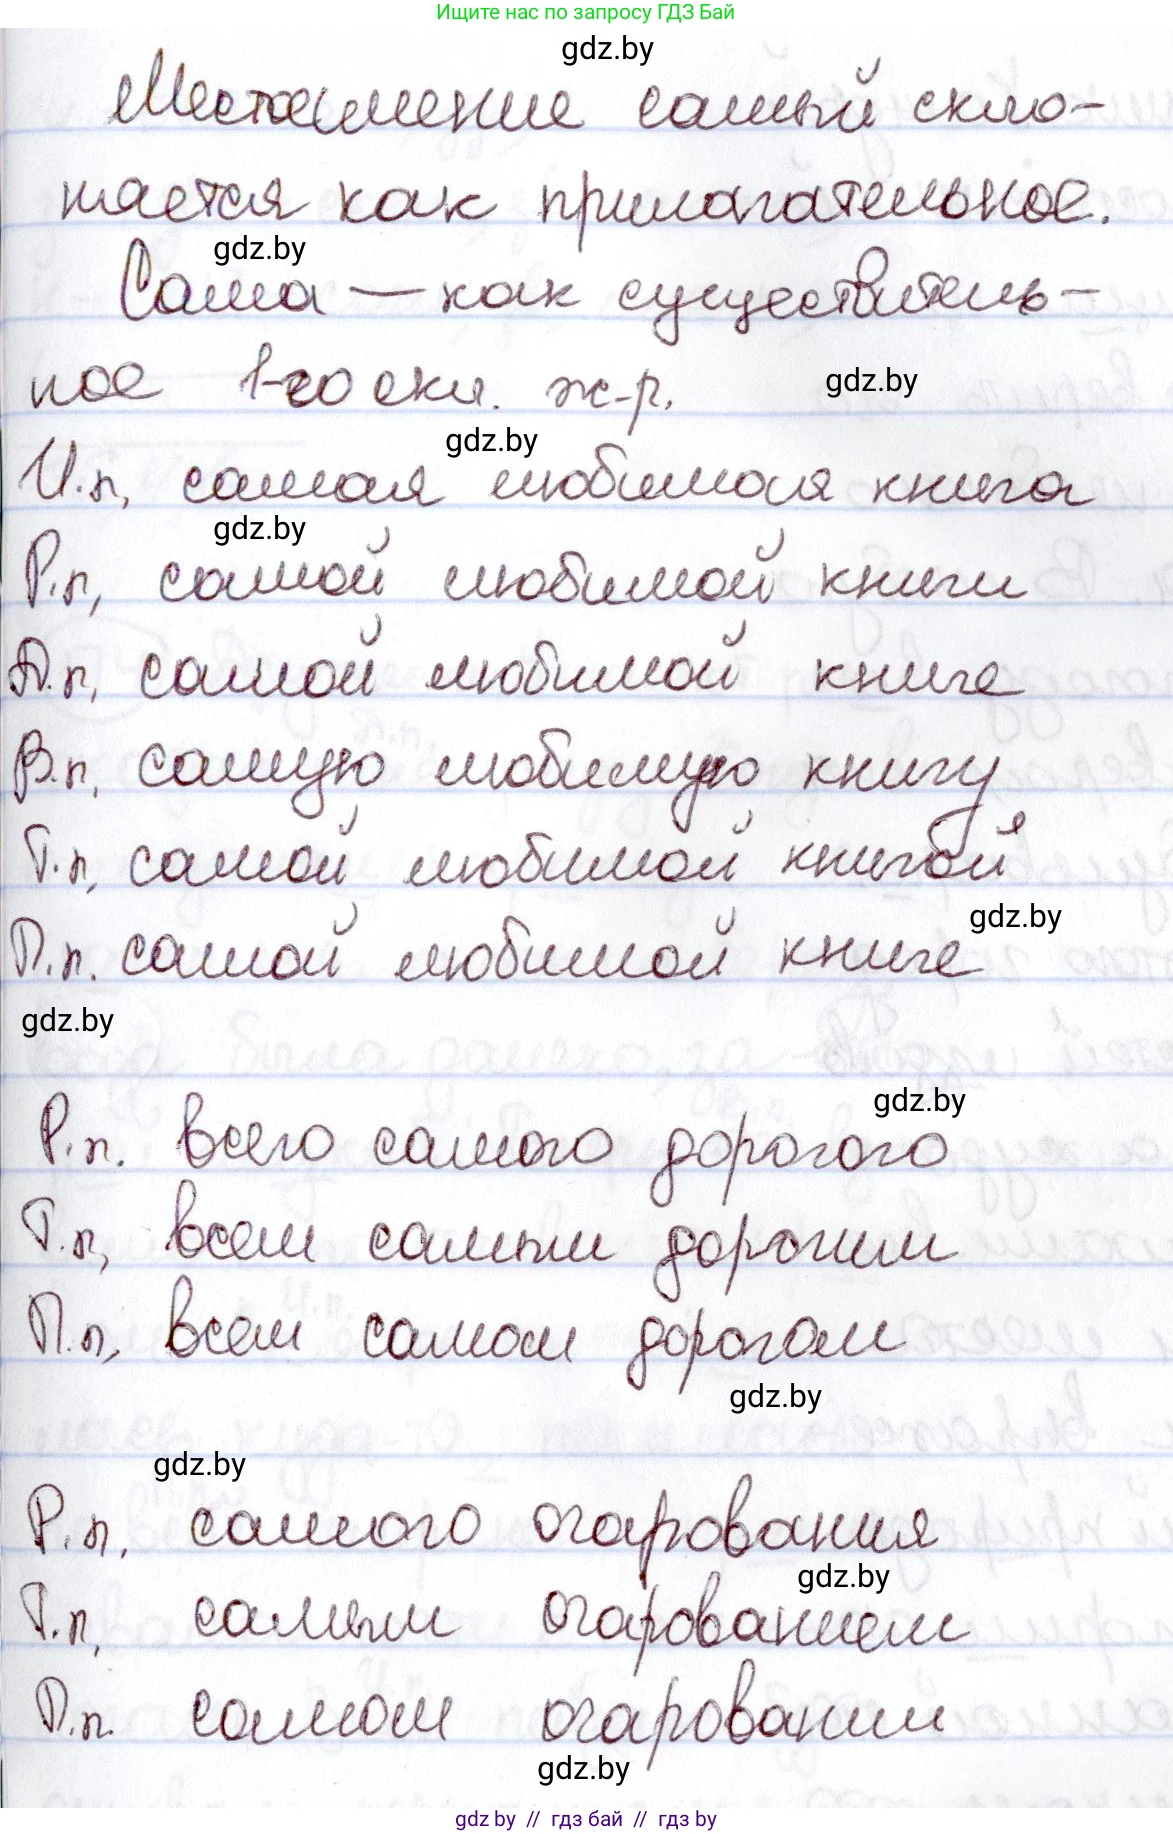 Ищите нас по запросу ГДЗ Бай
gdz.by
Местоимение самый скло-
няется как прилагательное.
gdz.by
Сама — как существитель-
ное 1-го скл. ж.р.
gdz.by
gdz.by
И.п. самая любимая книга
gdz.by
Р.п. самой любимой книги
Д.п. самой любимой книге
В.п. самую любимую книгу
Т.п. самой любимой книгой
gdz.by
П.п. самой любимой книге
gdz.by
gdz.by
Р.п. всего самого дорогого
Т.п. всем самым дорогим
П.п. всем самом дорогом
gdz.by
gdz.by
Р.п. самого очарования
gdz.by
Т.п. самым очарованием
П.п. самом очаровании
gdz.by
gdz by // гдз бай // гдз by